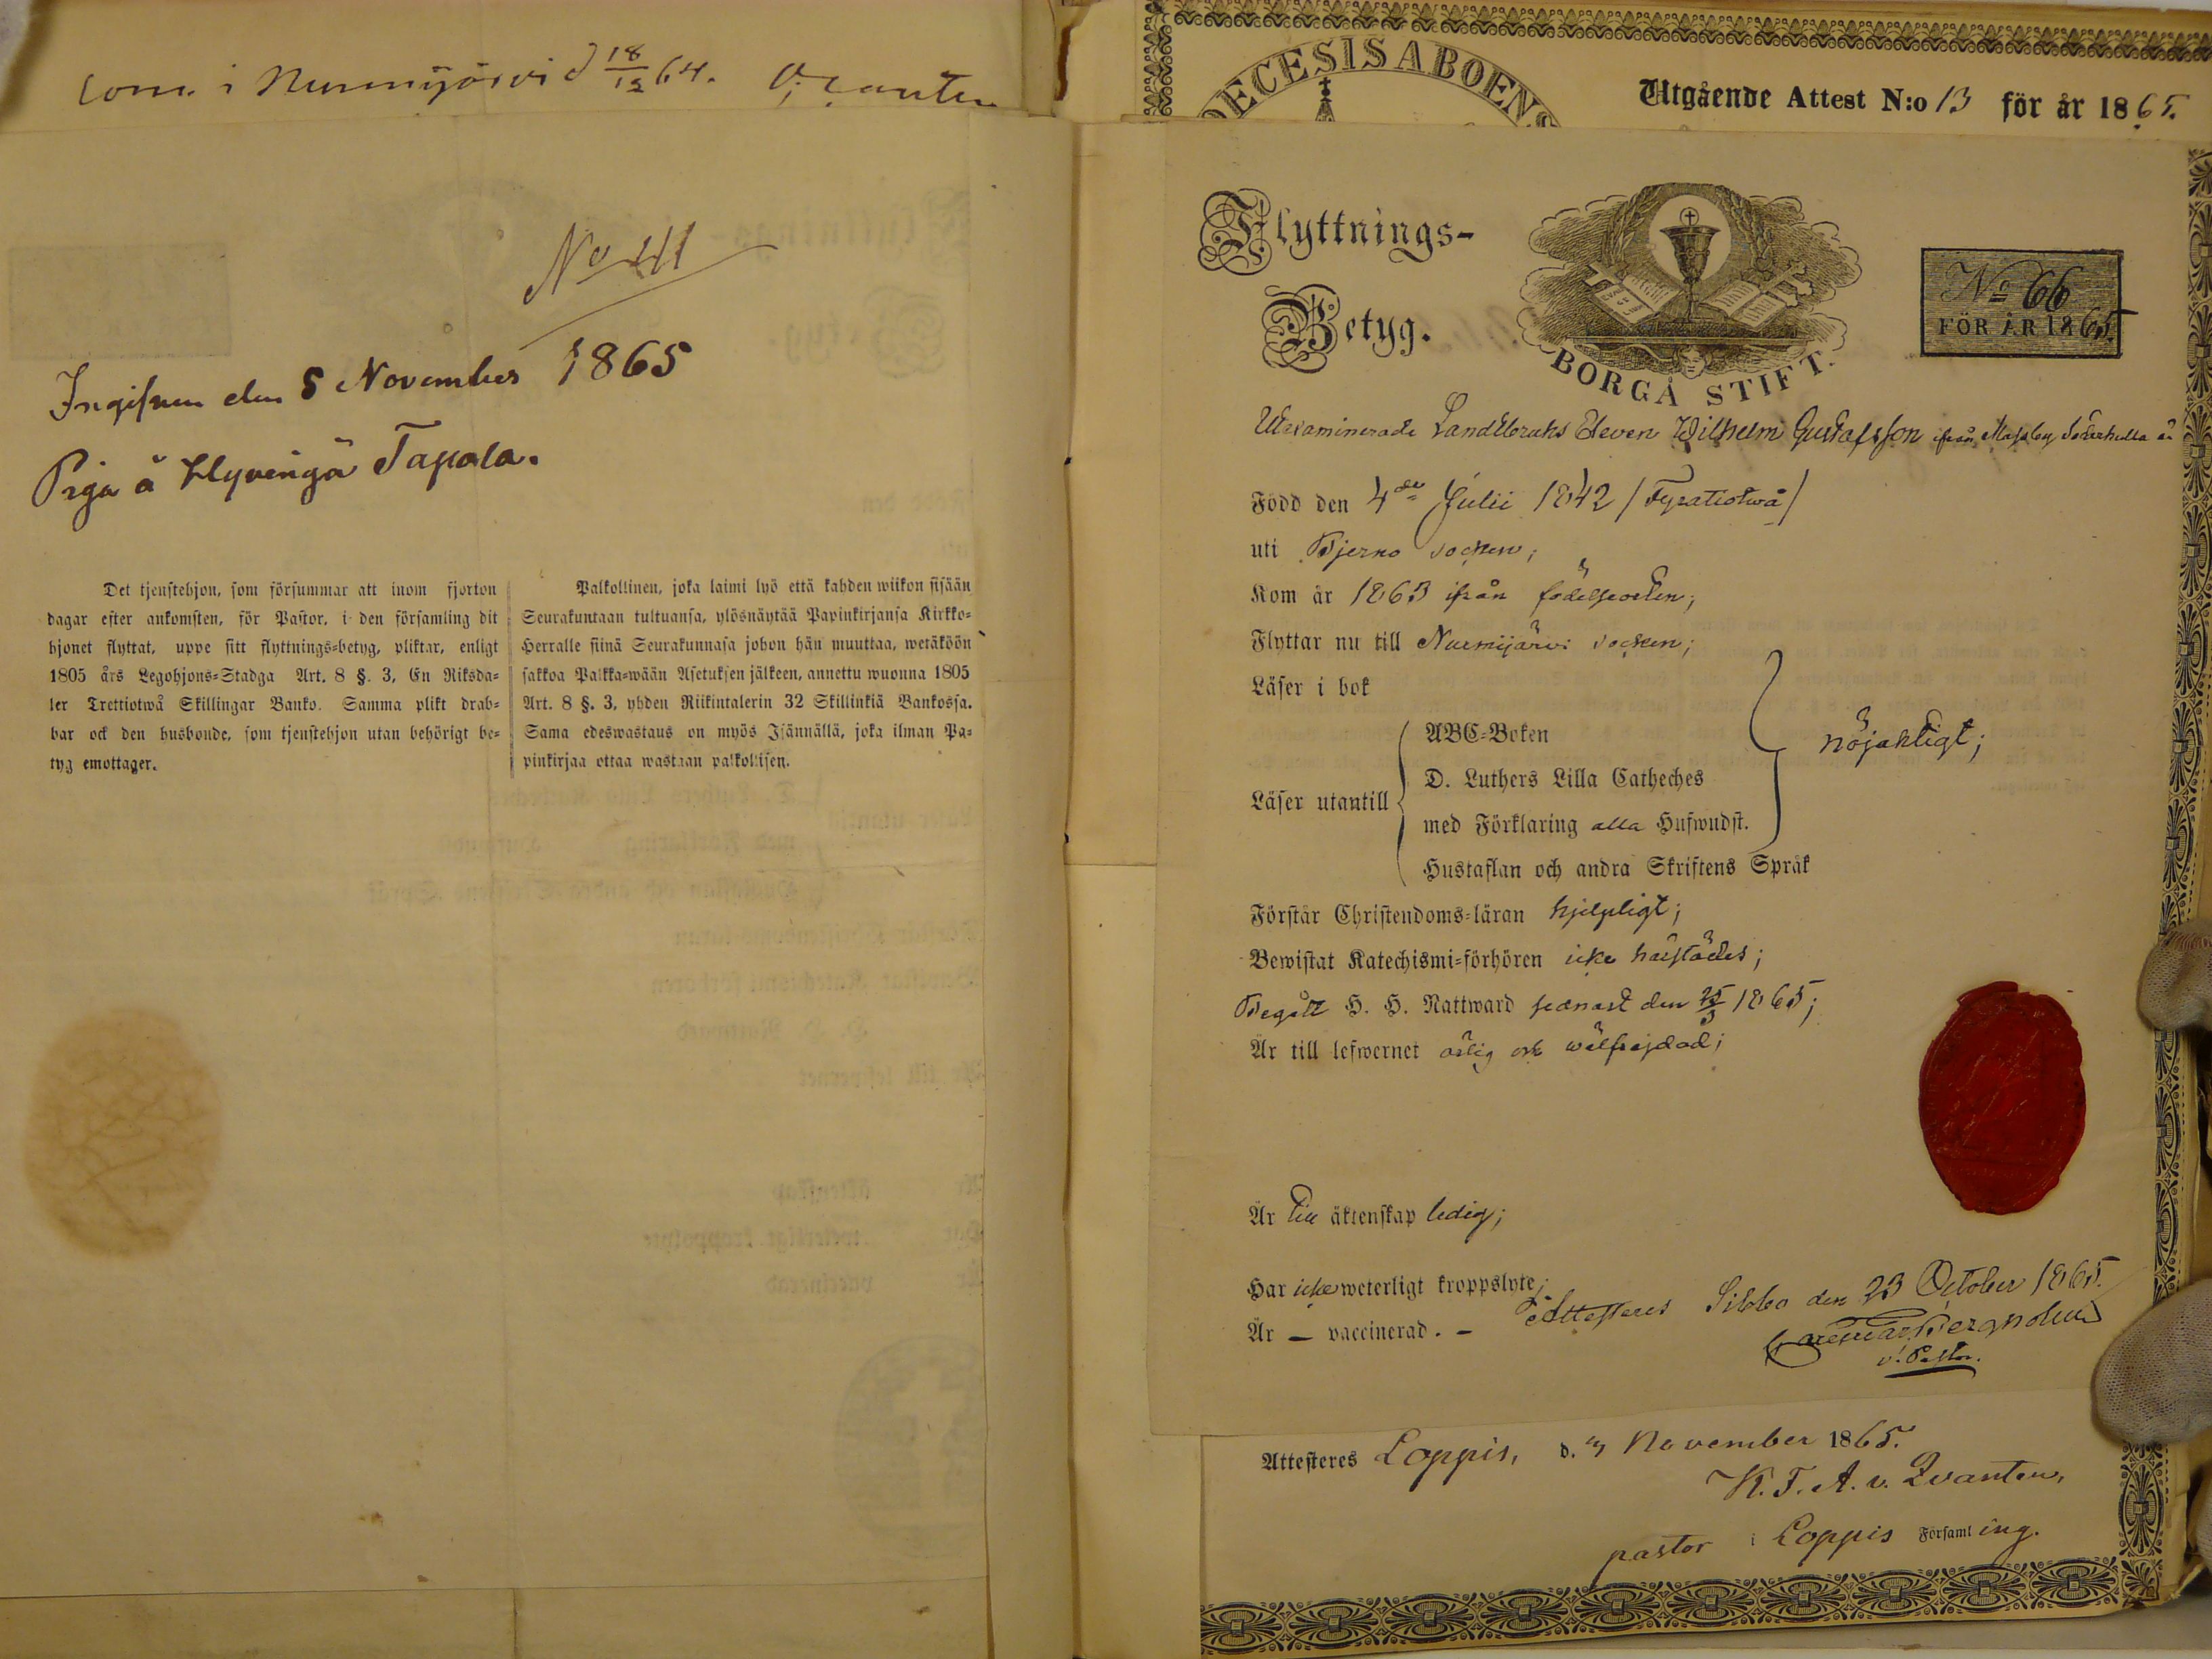 kom. i Nurmijärvi d 18/12 64.
No 411
Ingifven den 5 November 1865
Piga å Hyvingä Tapola.
Det tjenstehjon, som försummar att inom fjorton
dagar efter ankomsten, för Pastor, i den församling dit
hjonet flyttat, uppe sitt flyttnings-betyg, pliktar, enligt
1805 års Legohjons-Stadga Art. 8 §. 3, En Riksda-
ler Trettiotwå Skillingar Banko. Samma plikt drab-
bar ock den husbonde, som tjenstehjon utan behörigt be-
tyg emottager.
Palkollinen, joka laimi lyö että kahden wiikon sisään
Seurakuntaan tultuansa, ylösnäytää Papinkirjansa Kirkko-
Herralle siinä Seurakunnasa johon hän muuttaa, wetäköön
sakkoa Palkka-wään Asetuksen jälkeen, annettu wuonna 1805
Art. 8 §. 3, yhden Riikintalerin 32 Skillinkiä Bankossa.
Sama edeswastaus on myös Isännällä, joka ilman Pa-
pinkirjaa ottaa wastaan palkollisen.
DECESIS ABOENS
Utgående Attest N:o 13 för år 1865.
Flyttnings-
Betyg.
BORGÅ STIFT.
No 66
FÖR ÅR 1865.
Utexaminerade Landtbruks Eleven Wilhelm Gustafsson ifrån Massby Söderkulla är
Född den 4de Julii 1842 /Fyratiotwå/
uti Bjerno socken;
Kom år 1863 ifrån födelseorten;
Flyttar nu till Nurmijärvi socken;
Läser i bok
Läser utantill
ABC-Boken
D. Luthers Lilla Catheches
med Förklaring alla Hufwudst.
Hustaflan och andra Skriftens Språk
nöjaktigt;
Förstår Christendoms-läran hjelpligt;
Bewistat Katechismi-förhören icke härstädes;
Begått H. H. Nattward sednast den 25/5 1865;
Är till lefwernet ärlig och wälfrejdad;
Är till äktenskap ledig;
Har icke weterligt kroppslyte;
Är — vaccinerad. —
Attesteras Sibbo den 23 October 1865.
Bergholm
v. Pastor.
Attesteres Loppis, d. 4 November 1865.
K. F. A. v. Qvanten,
pastor i Loppis Församling.